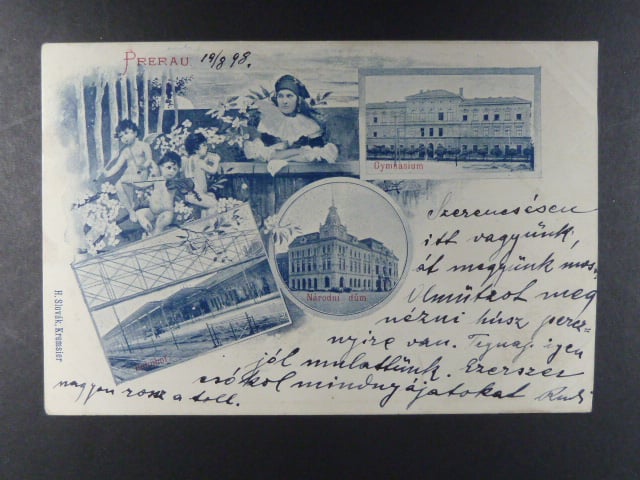 PRERAU 19/8 98.
Gymnasium
Národní dům
Bahnhof
H. Slovák, Kremsier
Szerencsésen
itt vagyunk,
át megyünk mos
Olmützot meg
nézni húsz percz-
nyire van. Tegnap igen
jól mulattunk. Ezerszer
csókol mindnyájatokat Rudi
nagyon rosz a toll.